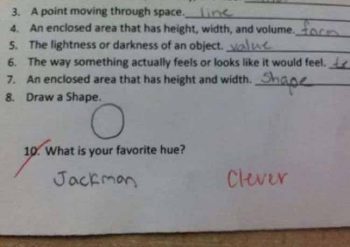 3. A point moving through space. line
4. An enclosed area that has height, width, and volume. form
5. The lightness or darkness of an object. value
6. The way something actually feels or looks like it would feel.
7. An enclosed area that has height and width. Shape
8. Draw a Shape.
10. What is your favorite hue?
Jackman Clever